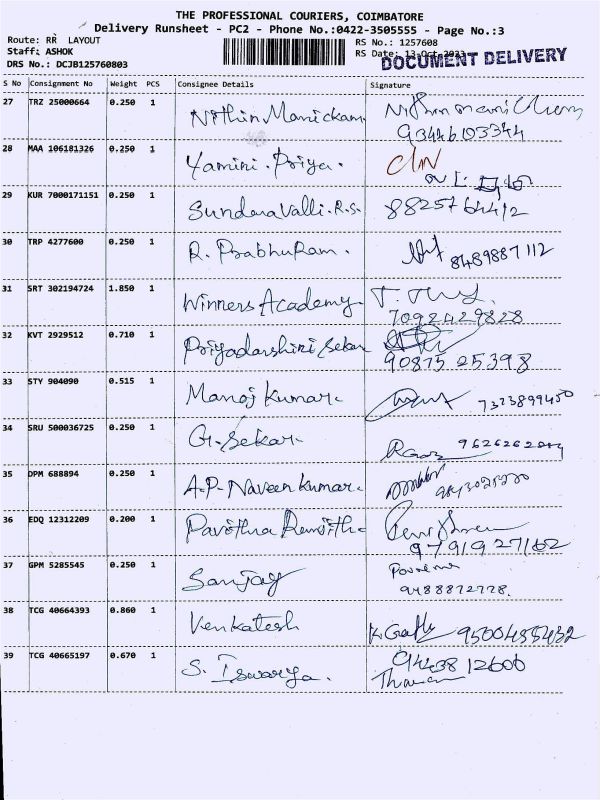 THE PROFESSIONAL COURIERS, COIMBATORE
Delivery Runsheet - PC2 - Phone No.:0422-3505555 - Page No.:3
Route: RR LAYOUT
RS No.: 1257608
Staff: ASHOK
RS Date: 13-Oct-2023
DOCUMENT DELIVERY
DRS No.: DCJB125760803
S No Consignment No Weight PCS Consignee Details Signature
27 TRZ 25000664 0.250 1 Nithin Manickam
93446103344
28 MAA 106181326 0.250 1 Yamini. Priya.
29 KUR 7000171151 0.250 1 Sundaravalli. R.S. 8825764412
30 TRP 4277600 0.250 1 R. PrabhuRam. 8489887112
31 SRT 302194724 1.850 1 Winners Academy.
7092429828
32 KVT 2929512 0.710 1 Priyadarshini Sekar
90875 25398
33 STY 904090 0.515 1 Manoj Kumar. 7323899450
34 SRU 500036725 0.250 1 G. Sekar.
35 DPM 688894 0.250 1 A.P. Naveen Kumar.
36 EDQ 12312209 0.200 1
9791927162
37 GPM 5285545 0.250 1 Sanjay
9488872778.
38 TCG 40664393 0.860 1 Venkatesh 9500455432
39 TCG 40665197 0.670 1 S. Iswarya. 94438 12606